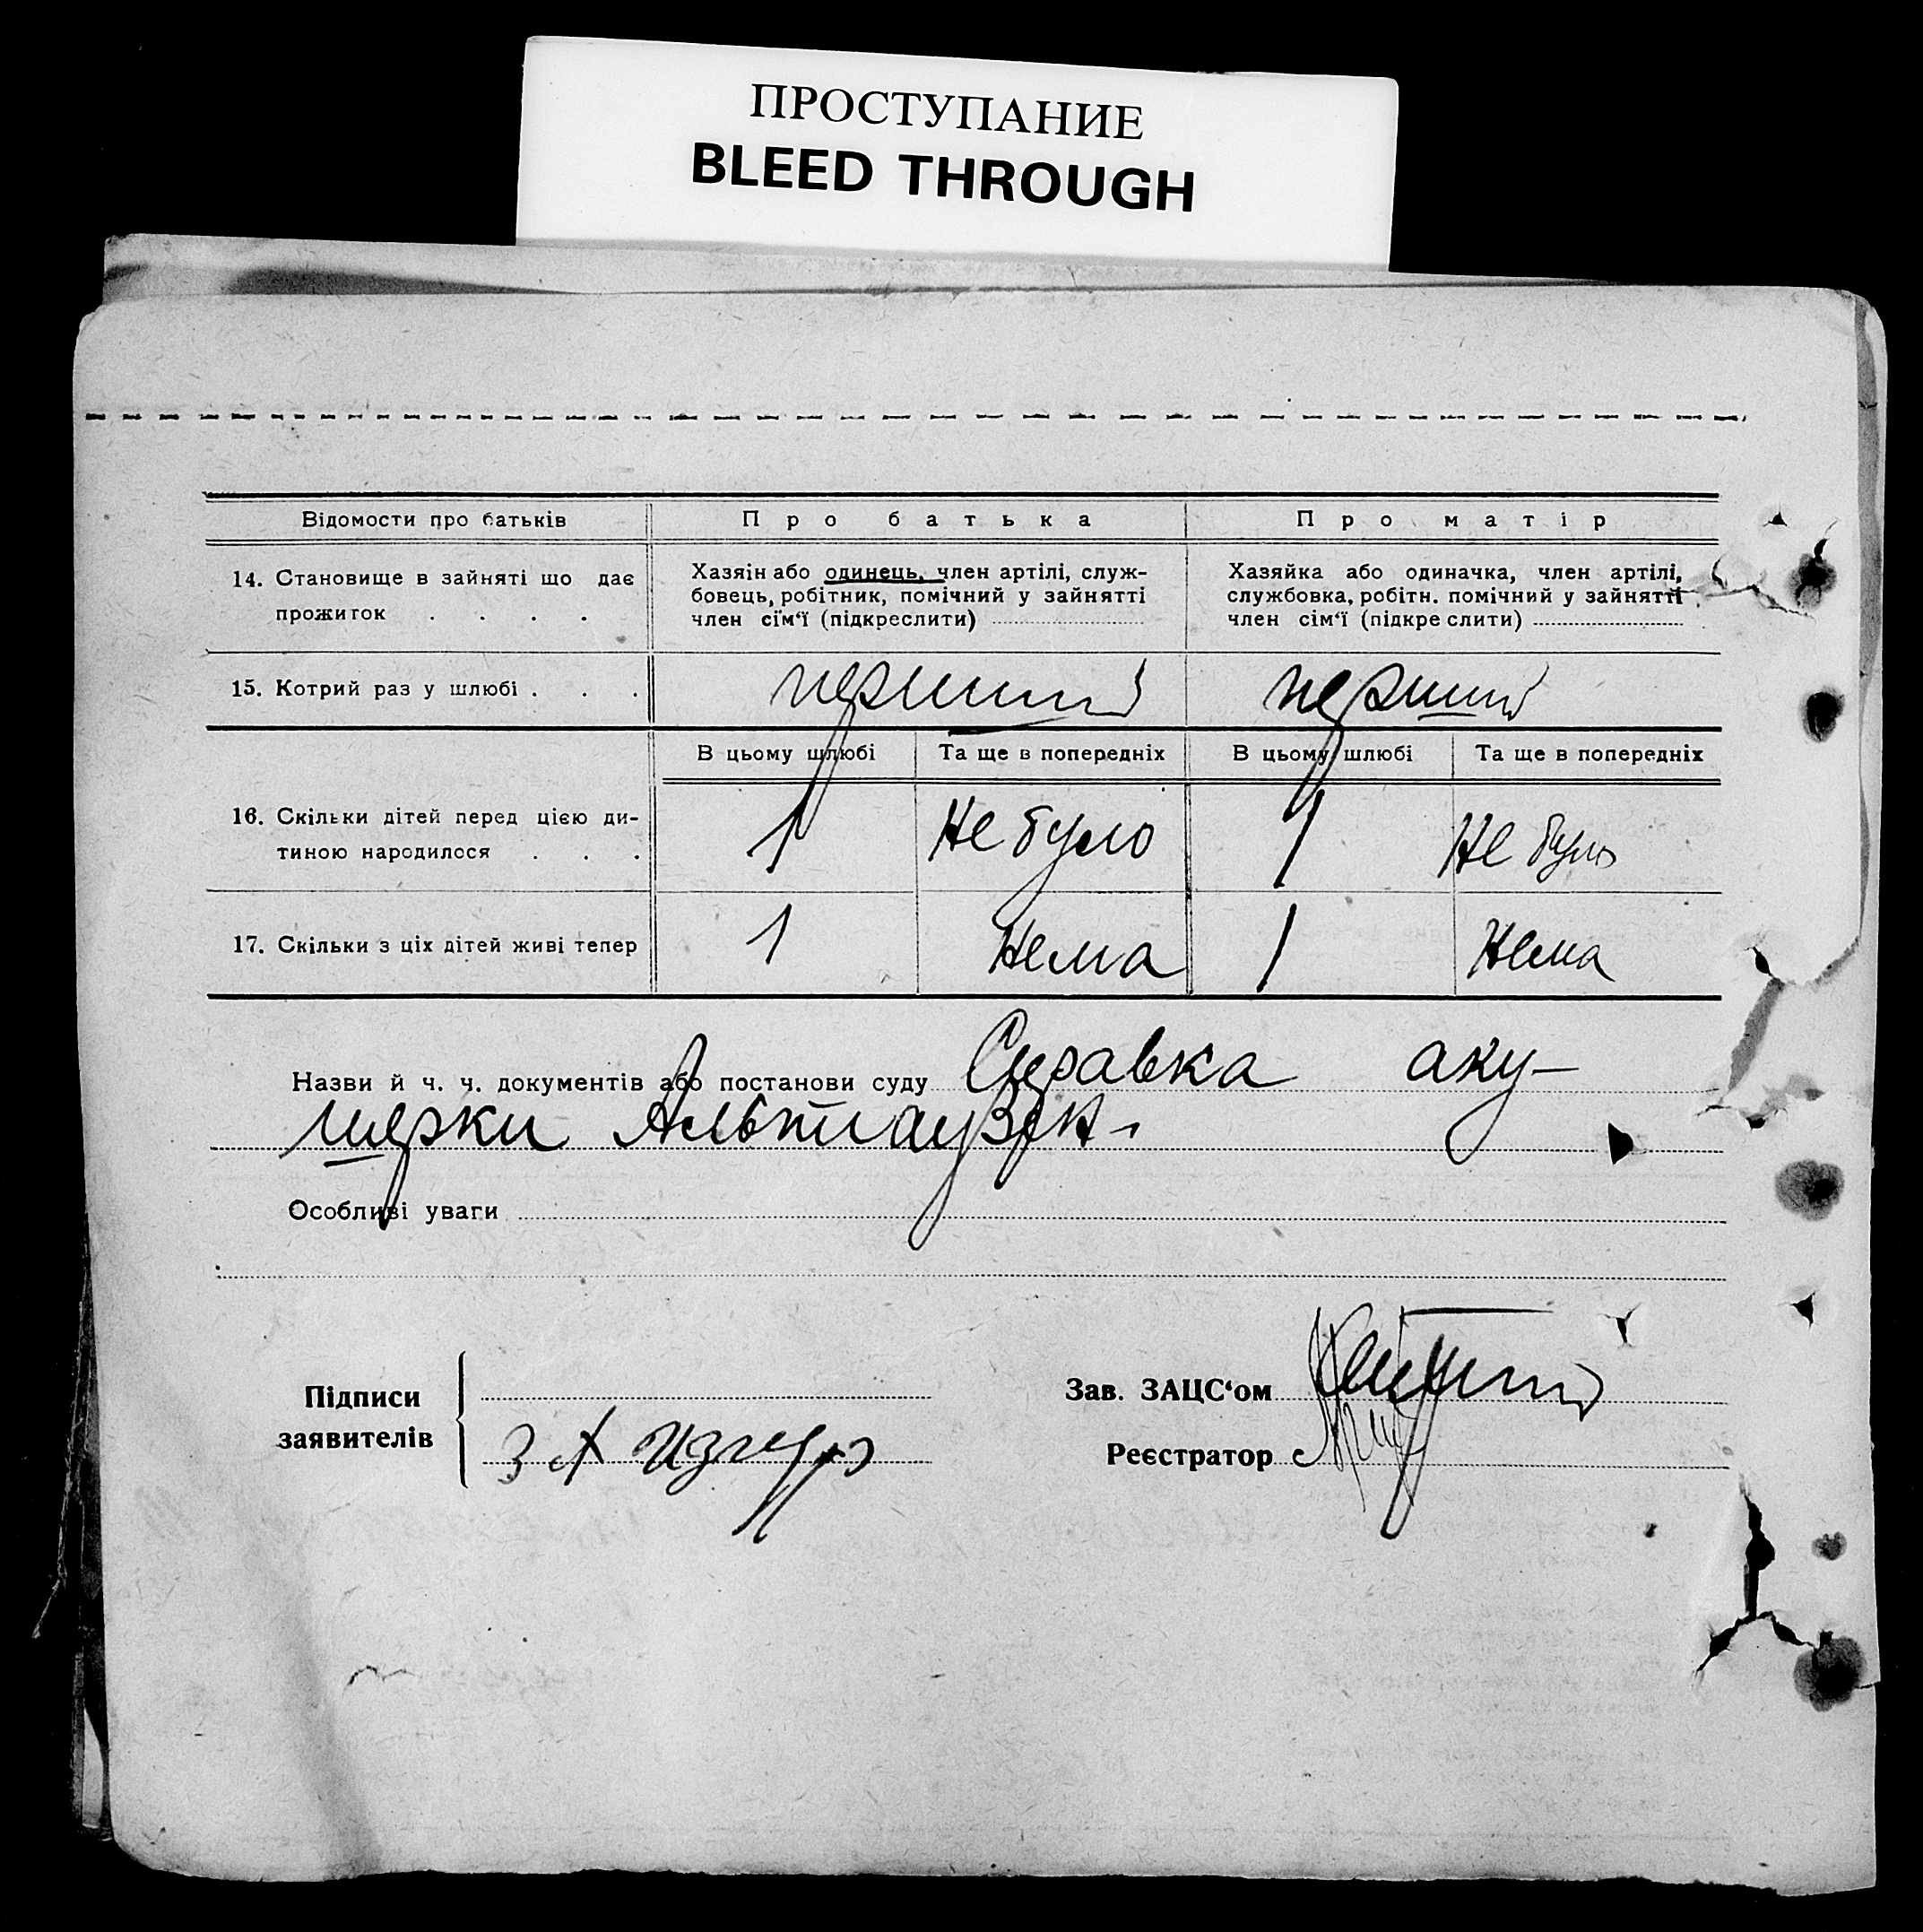 ПРОСТУПАНИЕ
BLEED THROUGH
Відомости про батьків
Про батька
Про матір
14. Становище в зайняті що дає
прожиток . . . .
Хазяїн або одинець, член артілі, служ-
бовець, робітник, помічний у зайнятті
член сім‘ї (підкреслити)
Хазяйка або одиначка, член артілі,
службовка, робітн. помічний у зайнятті
член сім‘ї (підкреслити)
15. Котрий раз у шлюбі . . .
перший
перший
В цьому шлюбі
Та ще в попередніх
В цьому шлюбі
Та ще в попередніх
16. Скільки дітей перед цією ди-
тиною народилося . . .
1
Не було
1
Не було
17. Скільки з ціх дітей живі тепер
1
Нема
1
Нема
Назви й ч. ч. документів або постанови суду Справка аку-
шерки
Особливі уваги
Підписи
заявителів
Зав. ЗАЦС‘ом
Реєстратор